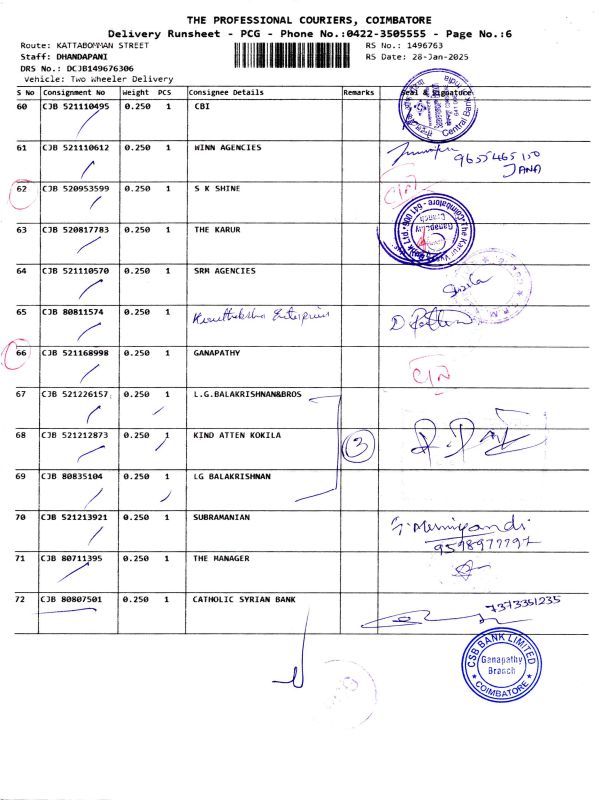 THE PROFESSIONAL COURIERS, COIMBATORE
Delivery Runsheet - PCG - Phone No.:0422-3505555 - Page No.:6
Route: KATTABOMMAN STREET
RS No.: 1496763
Staff: DHANDAPANI
RS Date: 28-Jan-2025
DRS No.: DCJB149676306
Vehicle: Two Wheeler Delivery
S No Consignment No Weight PCS Consignee Details Remarks Seal & Signature
60 CJB 521110495 0.250 1 CBI
61 CJB 521110612 0.250 1 WINN AGENCIES
9655465150
JANA
62 CJB 520953599 0.250 1 S K SHINE
63 CJB 520817783 0.250 1 THE KARUR
Ganapathy
Branch
64 CJB 521110570 0.250 1 SRM AGENCIES
65 CJB 80811574 0.250 1
66 CJB 521168998 0.250 1 GANAPATHY
67 CJB 521226157 0.250 1 L.G.BALAKRISHNAN&BROS
68 CJB 521212873 0.250 1 KIND ATTEN KOKILA 3
69 CJB 80835104 0.250 1 LG BALAKRISHNAN
70 CJB 521213921 0.250 1 SUBRAMANIAN
9598977797
71 CJB 80711395 0.250 1 THE MANAGER
72 CJB 80807501 0.250 1 CATHOLIC SYRIAN BANK
7373351235
CSB BANK LIMITED
Ganapathy
Branch
COIMBATORE